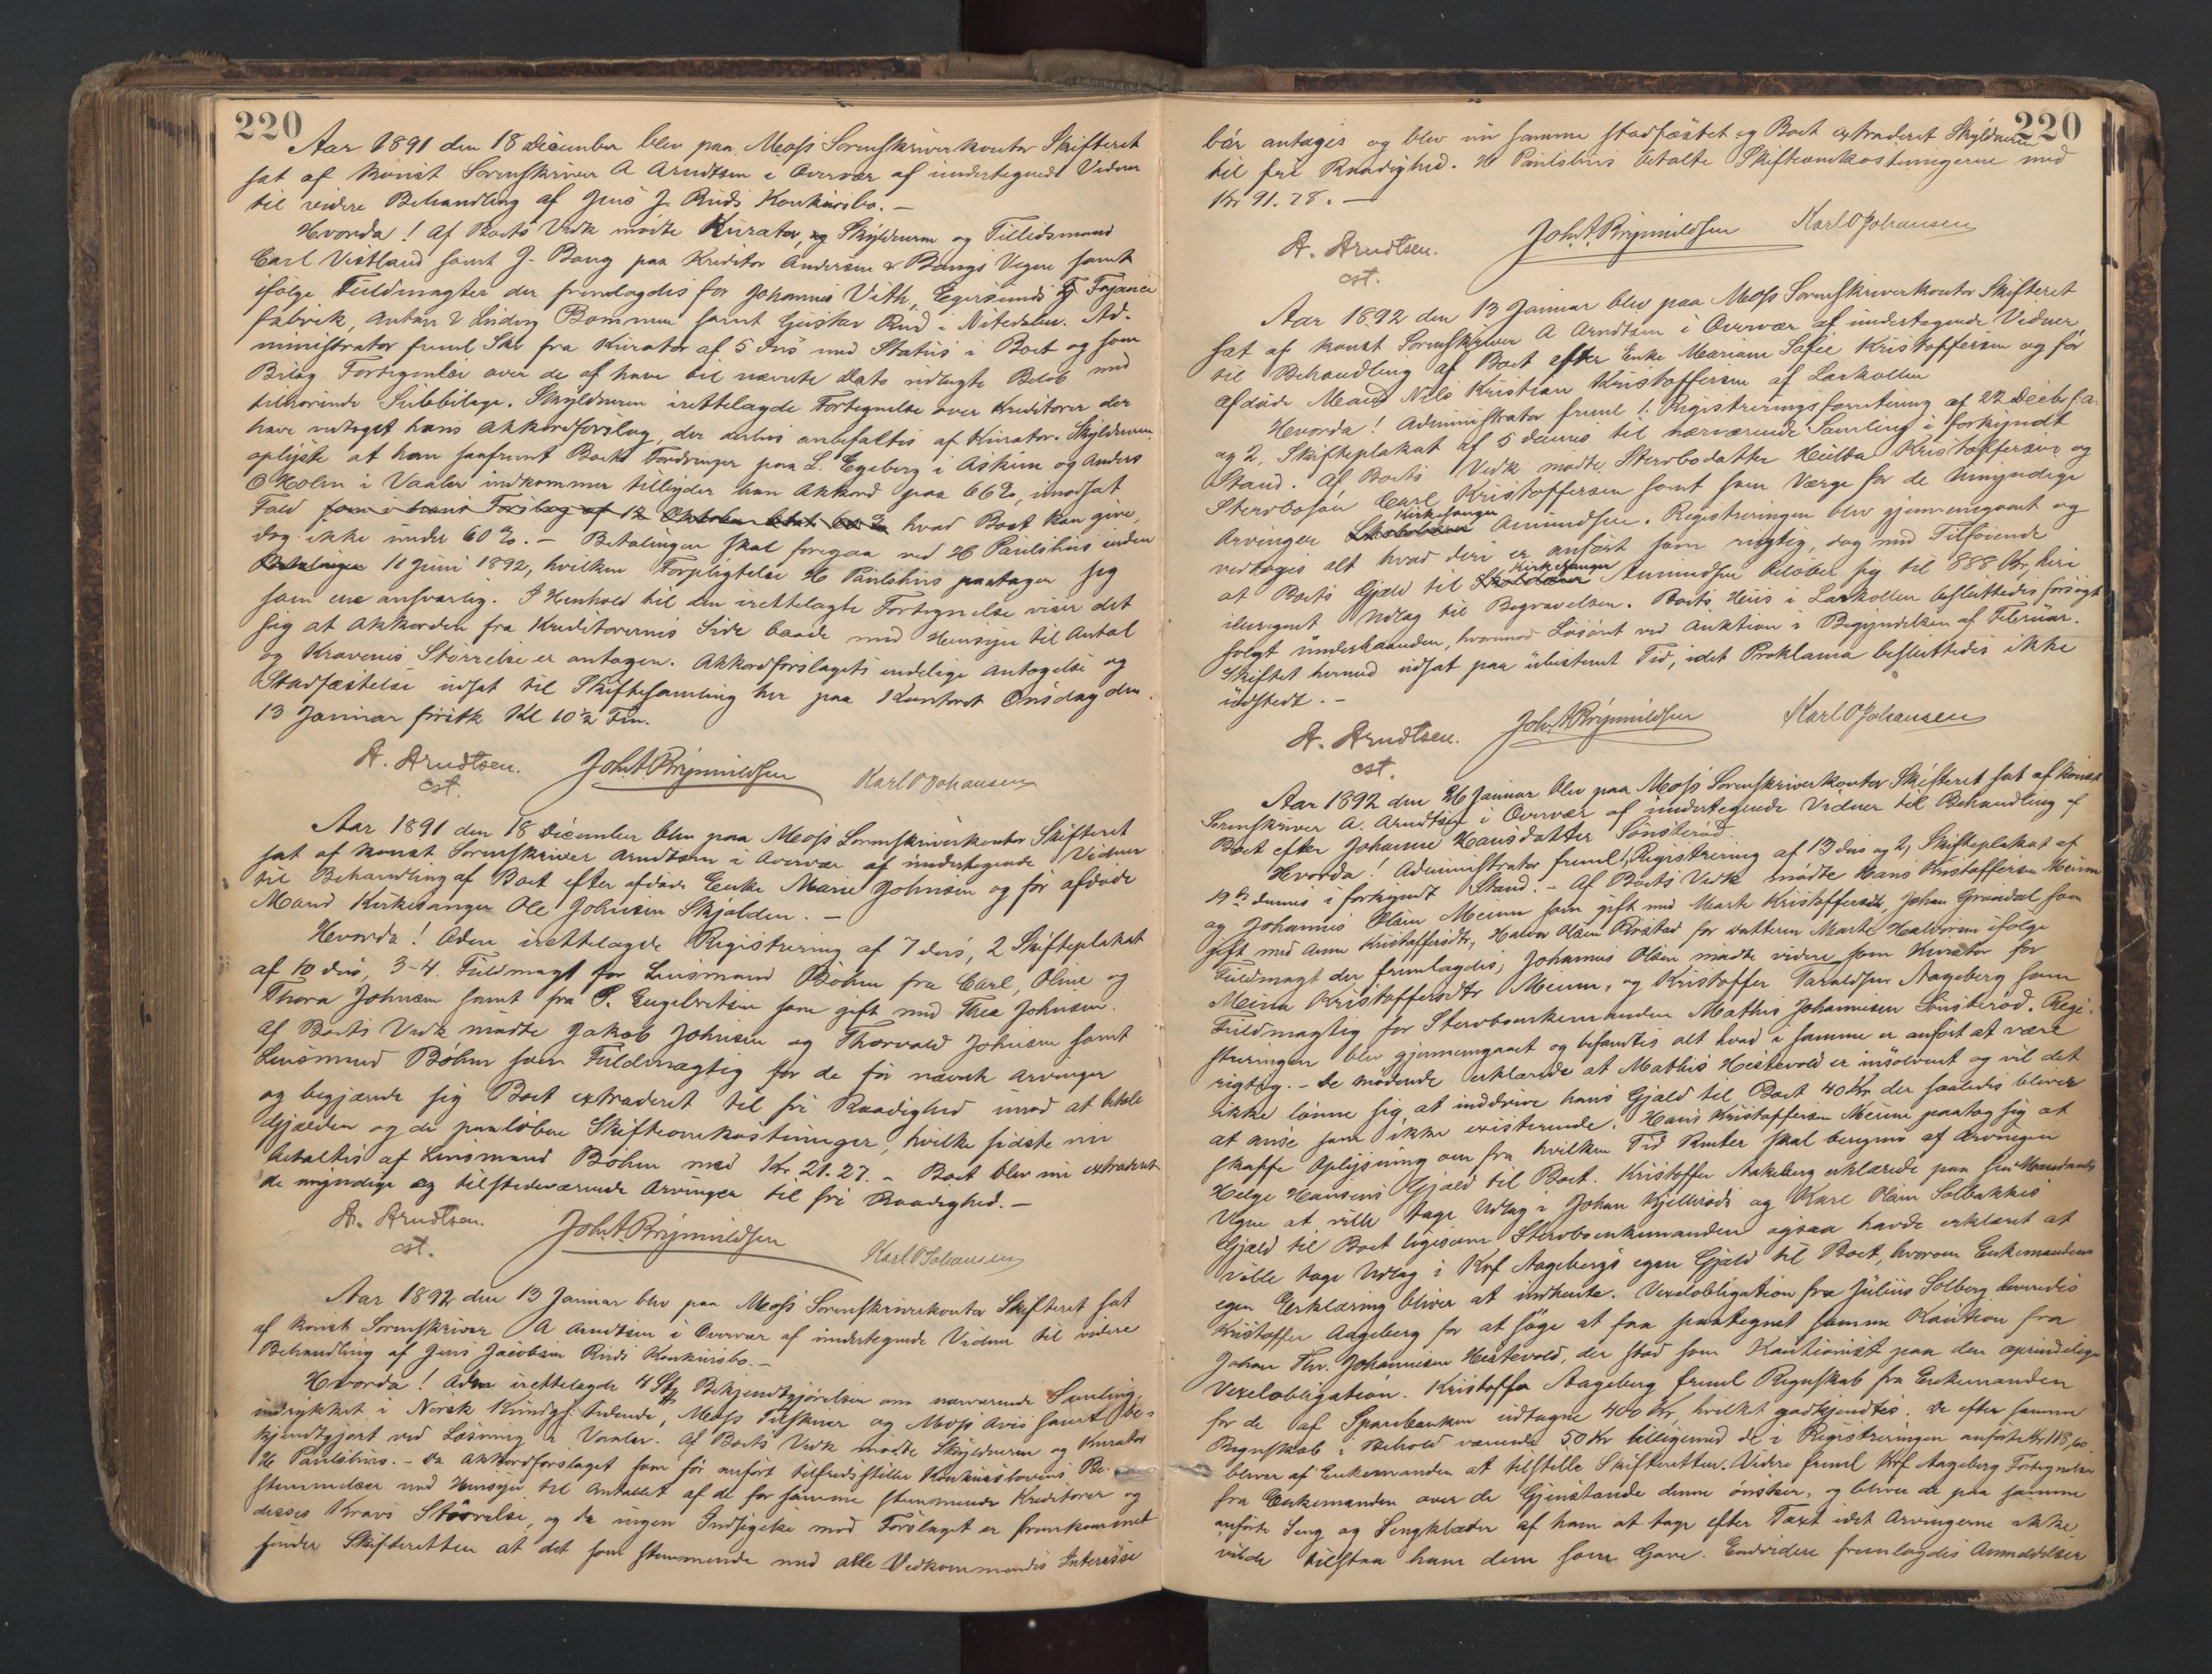 220
Aar 1891 den 18 December blev paa Moss Sorenskriverkontor Skifteret
sat af konst Sorenskriver A Arndtsen i Overvær af undertegnede Vidner
til videre Behandling af Jens J. Ruds Konkursbo. –
Hvorda! Af Boets Vedk mødte Kurator, og Skyldneren og Tillidsmand
Carl Vestland samt J. Bang paa Kreditor Andersen & Bangs Vegne samt
ifølge Fuldmagter der fremlagdes for Johannes Vith, Egersunds Fajance
fabrik, Anton & Ludvig Bommen samt Gustav Rud i Nitedalen. Ad-
ministrator freml Skr fra Kurator af 5 ds med Status i Boet og som
Bilag Fortegnelse over de af ham til nævnte Dato udlagte Beløb med
tilhørende Subbilage. Skyldneren irettelagde Fortegnelse over Kreditorer der
have vedtaget hans Akkordforslag, der ansees anbefaltes af Kurator. Skyldneren
oplyste at han saafremt Boets Fordringer paa L. Egeberg i Askim og Anders
O Holm i Vaaler indkommer tilbyder han Akkord paa 66 %, imodsat
Fald som i hans Forslag af 12 Oktober hvad Boet kan give,
dog ikke under 60 %. – Betalingen skal foregaa ved H Paulshus inden
Betalingen 11 Juni 1892, hvilken Forpligtelse H Paulshus paatager sig
som ene ansvarlig. I Henhold til den irettelagte Fortegnelse viser det
sig at Akkorden fra Kreditorernes Side baade med Hensyn til Antal
og Kravenes Størrelse er antagen. Akkordforslagets endelige Antagelse og
Stadfæstelse udsat til Skiftesamling her paa Kontoret Onsdag den
13 Januar førstk Kl 10½ Fm.
A. Arndtsen. Joh. A. Brynildsen Karl O Johansen
cst.
Aar 1891 den 18 December blev paa Moss Sorenskriverkontor Skifteret
sat af konst. Sorenskriver Arndtsen i Overvær af undertegnede Vidner
til Behandling af Boet efter afdøde Enke Marie Johnsen og før afdøde
Mand Kirkesanger Ole Johnsen Skjolden. –
Hvorda! Adm irettelagde Registrering af 7 ds, 2 Skifteplakat
af 10 ds, 3-4. Fuldmagt for Lensmand Bøhm fra Carl, Oline og
Thora Johnsen samt fra S. Engebretsen som gift med Thea Johnsen.
Af Boets Vedk mødte Jakob Johnsen og Thorvald Johnsen samt
Lensmand Bøhm som Fuldmægtig for de før nævnte Arvinger
og begjærede sig Boet extraderet til fri Raadighed imod at betale
Gjælden og de paaløbne Skifteomkostninger, hvilke sidste nu
betaltes af Lensmand Bøhm med Kr 21.27. – Boet blev nu extraderet
de myndige og tilstedeværende Arvinger til fri Raadighed. –
A. Arndtsen. Joh. A. Brynildsen Karl O Johansen
cst.
Aar 1892 den 13 Januar blev paa Moss Sorenskriverkontor Skifteret sat
af konst Sorenskriver A Arndtsen i Overvær af undertegnede Vidner til videre
Behandling af Jens Jacobsen Ruds Konkursbo. –
Hvorda! Adm irettelagde 4 Stk Bekjendtgjørelser om nærværende Samling,
indrykket i Norsk Kundgj. tidende, Moss Tilskuer og Moss Avis samt be-
kjendtgjort ved Læsning i Vaaler. Af Boets Vedk mødte Skyldneren og Kurator
H Paulshus. – Da Akkordforslaget som før anført tilfredsstiller Konkurslovens Be-
stemmelser med Hensyn til Antallet af de for samme stemmende Kreditorer og
disses Kravs Størrelse, og da ingen Indsigelse mod Forslaget er fremkommet
finder Skifteretten at det som stemmende med alle Vedkommendes Interesse
220
bør antages og blev nu samme stadfæstet og Boet extraderet Skyldneren
til fri Raadighed. H Paulshus betalte Skifteomkostningerne med
Kr 91.28. –
A. Arndtsen. Joh. A. Brynildsen Karl O Johansen
cst.
Aar 1892 den 13 Januar blev paa Moss Sorenskriverkontor Skifteret
sat af konst Sorenskriver A Arndtsen i Overvær af undertegnede Vidner
til Behandling af Boet efter Enke Mariane Sofie Kristoffersen og før
afdøde Mand Nils Kristian Kristoffersen af Larkollen
Hvorda! Administrator freml 1: Registreringsforretning af 22 Decbr f.a.
og 2, Skifteplakat af 5 dennes til nærværende Samling i forkyndt
Stand. Af Boets Vedk mødte Stervbodatter Hulda Kristoffersen og
Stervbosøn Carl Kristoffersen samt som Værge for de Umyndige
Arvinger Kirkesanger Amundsen. Registreringen blev gjennemgaaet og
vedtoges alt hvad deri er anført som rigtig, dog med Tilføiende
at Boets Gjæld til Kirkesanger Amundsen beløber sig til 888 Kr, heri
iberegnet Udlæg til Begravelsen. Boets Hus i Larkollen besluttedes forsøgt
solgt underhaanden, hvorimod Løsøret ved Auktion i Begyndelsen af Februar.
Skiftet hermed udsat paa ubestemt Tid, idet Proklama besluttedes ikke
udstedt. –
A. Arndtsen. Joh. A. Brynildsen Karl O Johansen
cst.
Aar 1892 den 26 Januar blev paa Moss Sorenskriverkontor Skifteret sat af konst
Sorenskriver A. Arndtsen i Overvær af undertegnede Vidner til Behandling af
Boet efter Johanne Hansdatter Sønsterød.
Hvorda! Administrator freml 1, Registrering af 13 ds og 2, Skifteplakat af
19 ds dennes i forkyndt Stand. – Af Boets Vedk mødte Hans Kristoffersen Meum
og Johannes Olsen Meum som gift med Marte Kristoffersdtr, Johan Grøndal som
gift med Anne Kristoffersdtr, Halvor Olsen for Datteren Marte Halvorsen ifølge
Fuldmagt der fremlagdes, Johannes Olsen mødte videre som Kurator for
Kristoffersdtr Meum, og Kristoffer Taraldsen Aageberg som
Fuldmægtig for Stervboenkemanden Mathis Johannesen Sønsterød. Regi-
streringen blev gjennemgaaet og befandtes alt hvad i samme er anført at være
rigtig. – De mødende erklærede at Mathis Hestevold er insolvent og vil det
ikke lønne sig at inddrive hans Gjæld til Boet 40 Kr der saaledes bliver
at anse som ikke existerende. Hans Kristoffersen Meum paatog sig at
skaffe Oplysning om fra hvilken Tid Renter skal beregnes af Arvingen
Helge Hansens Gjæld til Boet. Kristoffer Aakeberg erklærede paa sin Mandants
Vegne at ville tage Udlæg i Johan Kjellerøds og Karl Olsen Solbakkes
Gjæld til Boet ligesom Stervboenkemanden ogsaa havde erklæret at
ville tage Udlæg i Krf Aagebergs egen Gjæld til Boet, hvorom Enkemandens
egen Erklæring bliver at indhente. Vexelobligation fra Julius Solberg leveredes
Kristoffer Aageberg for at søge at faa paategnet samme Kaution fra
Johan Thv. Johannesen Hestevold, der stod som Kautionist paa den oprindelige
Vexelobligation. Kristoffer Aageberg freml Regnskab fra Enkemanden
for de af Sparebanken udtagne 400 Kr, hvilket godkjendtes. De efter samme
Regnskab i Behold værende 50 Kr tilligemed de i Registreringen anførte Kr 118,60
bliver af Enkemanden at tilstille Skifteretten. Videre freml Krf Aageberg Fortegnelse
fra Enkemanden over de Gjenstande denne ønsker, og bliver de paa samme
anførte Seng og Sengklæder af ham at tage efter Taxt idet Arvingerne ikke
vilde tilstaa ham dem som Gave. Endvidere fremlagdes Anmeldelser